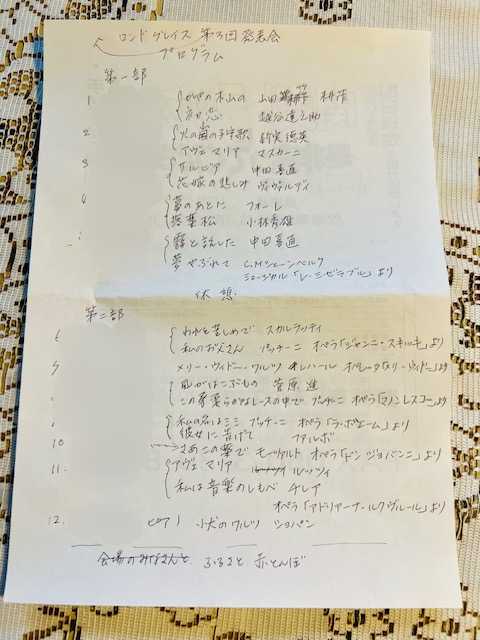 ロンド グレイス 第3回 発表会
プログラム
第一部
1 かやの木山の 山田 耕筰
初恋 越谷達之助
2. 火の島の子守歌 新実徳英
アヴェ マリア マスカーニ
3 サルビア 中田喜直
花嫁の悲しみ ヴィヴァルディ
4 夢のあとに フォーレ
落葉松 小林秀雄
霧と話した 中田喜直
夢やぶれて C.M シェーンベルク
ミュージカル「レ・ミゼラブル」より
休憩
第二部
6 われを苦しめで スカルラッティ
私のお父さん プッチーニ オペラ「ジャンニ・スキッキ」より
メリー・ウィドー・ワルツ レハール オペレッタ「メリー・ウィドー」より
風がはこぶもの 菅原 進
この柔らかなレースの中で プッチーニ オペラ「マノンレスコー」より
私の名はミミ プッチーニ オペラ「ラ・ボエーム」より
彼女に告げて ファルボ
10 さあこの薬で モーツァルト オペラ「ドン ジョバンニ」より
11. アヴェ マリア ルッツィ
私は音楽のしもべ チレア
オペラ「アドリアーナ・ルクヴルール」より
12. ピアノ 小犬のワルツ ショパン
会場のみなさんと ふるさと 赤とんぼ